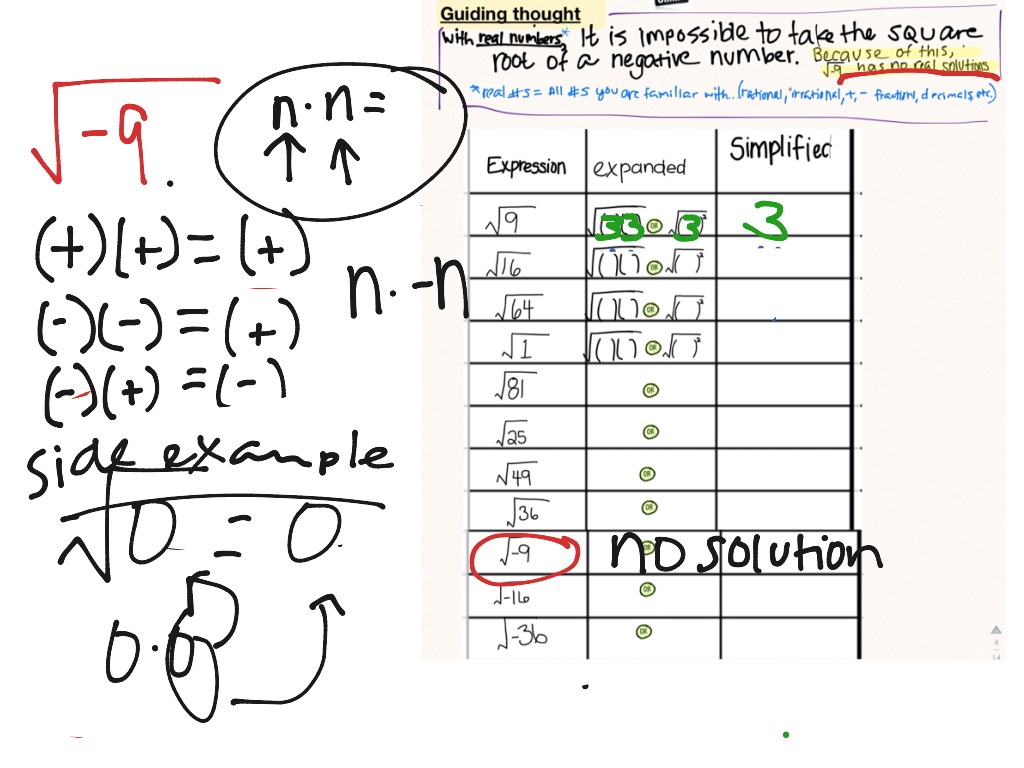 Guiding thought
with real numbers* It is impossible to take the square
root of a negative number. Because of this,
√-9 has no real solutions
*real #s = All #s you are familiar with.. (rational, irrational, +, - fractions, decimals etc)
√-9
n·n=
(+)(+)=(+)
(-)(-)=(+)
(-)(+)=(-)
n·-n
side example
√0 = 0
0·0
Expression expanded Simplified
√9 √(3)(3) OR √(3)² 3
√16 √( )( ) OR √( )²
√64 √( )( ) OR √( )²
√1 √( )( ) OR √( )²
√81 OR
√25 OR
√49 OR
√36 OR
√-9 no solution
√-16 OR
√-36 OR